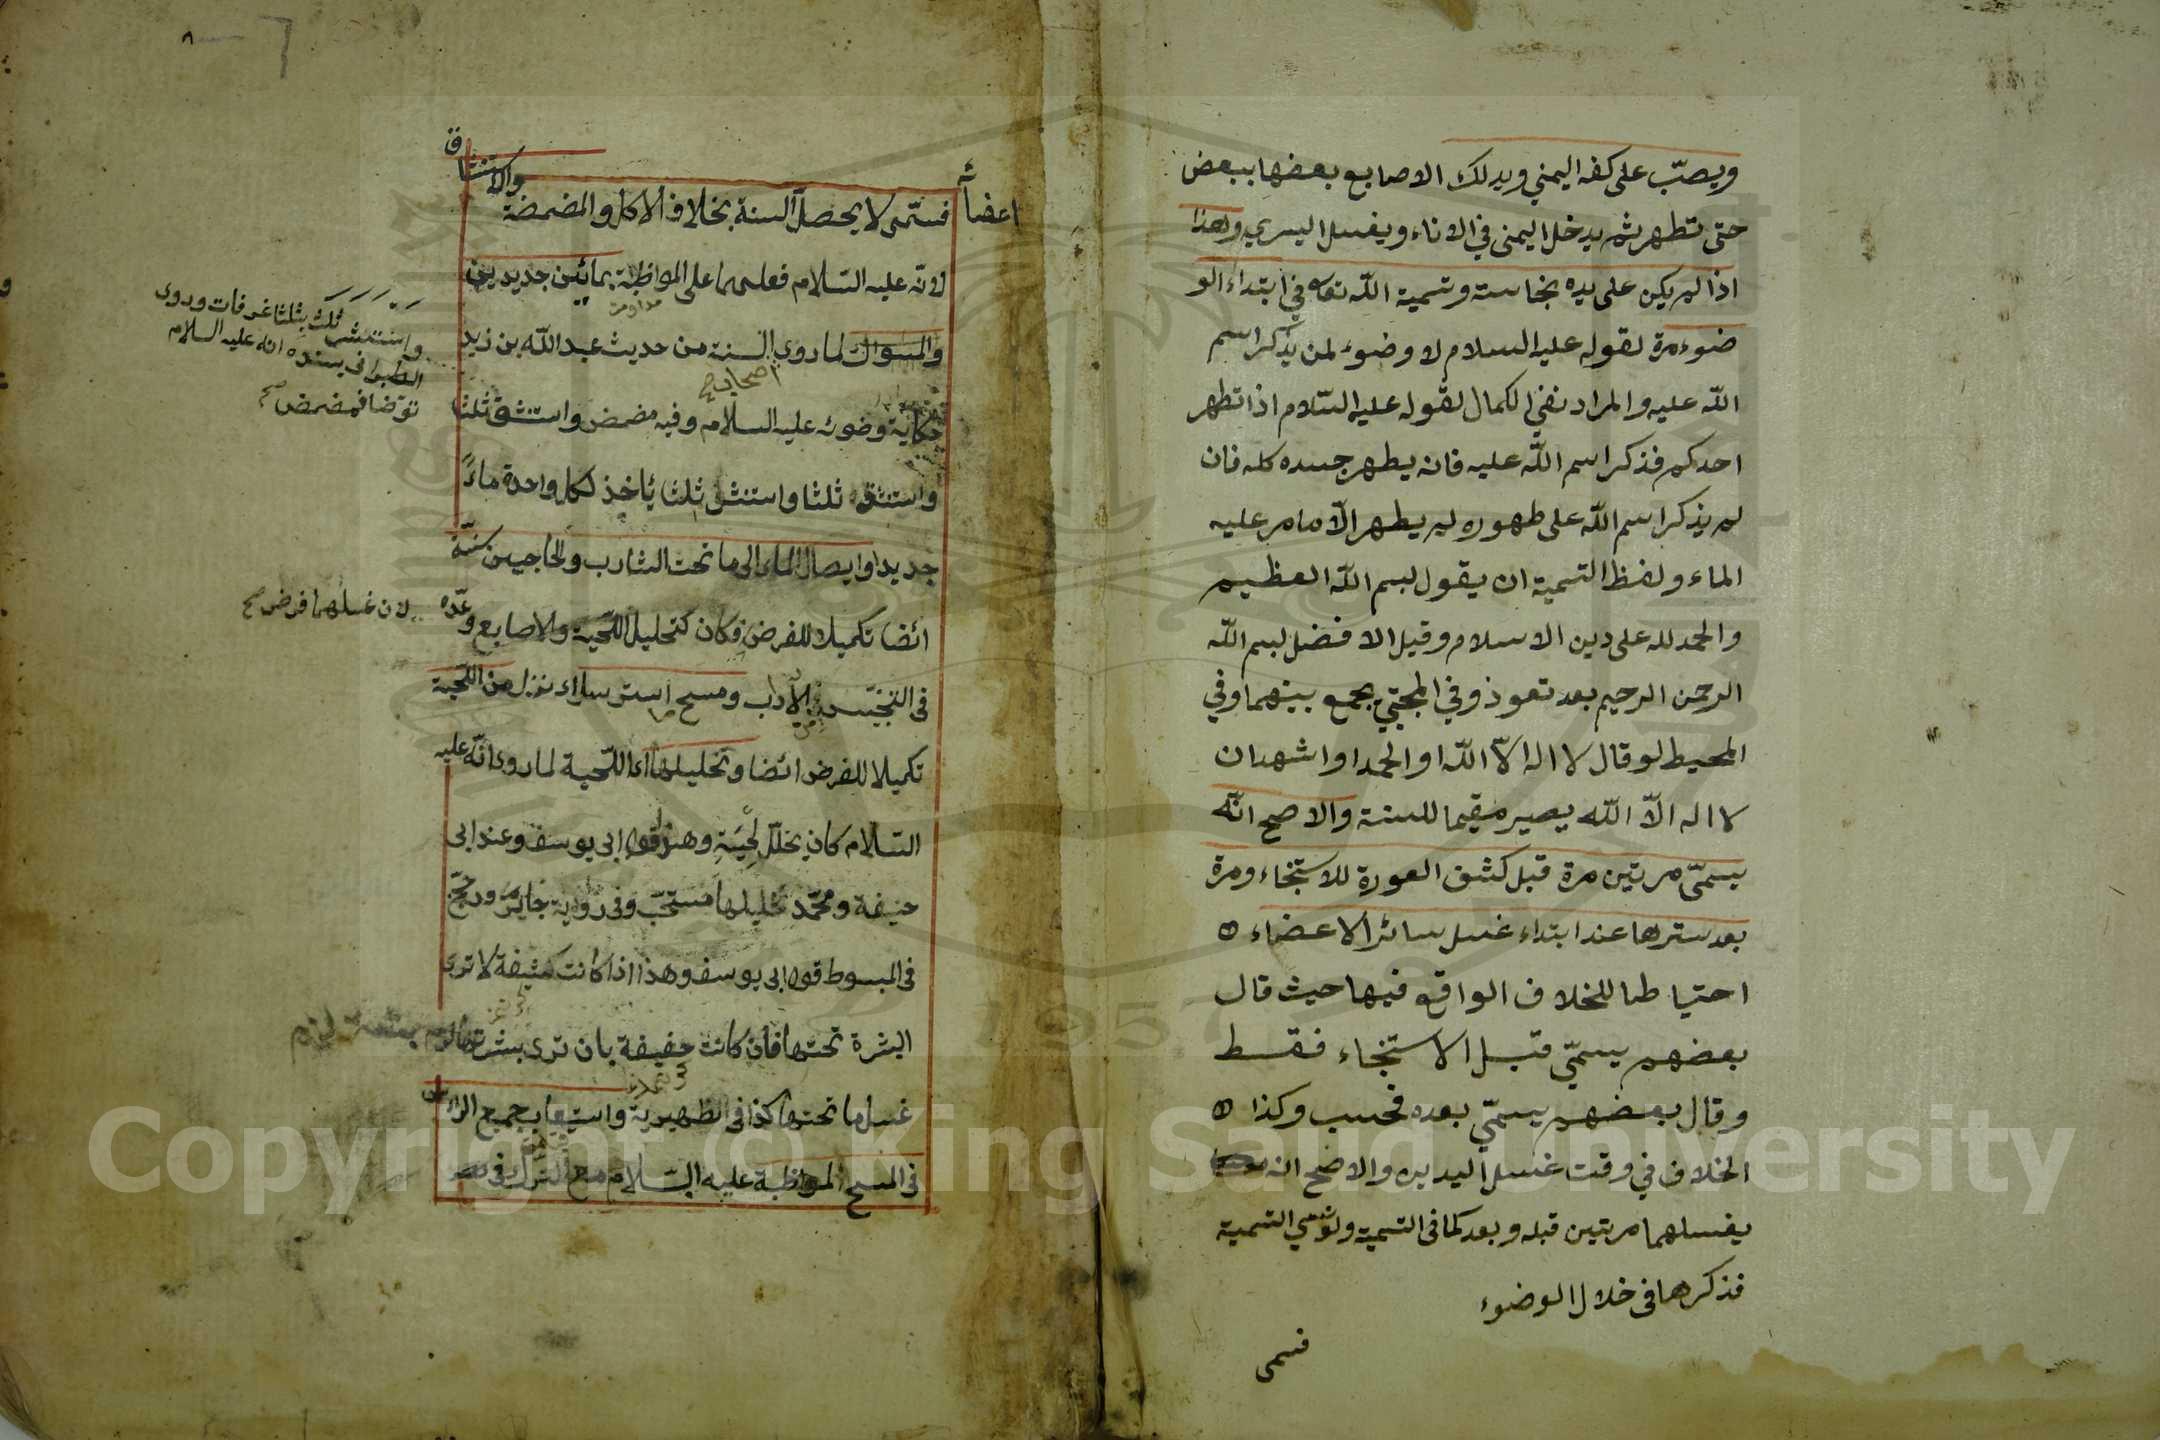 ويصبّ على كفه اليمني ويدلك الاصابع بعضها ببعض
حتى تطهر ثم يدخل اليمنى في الاناء ويغسل اليسري وهذا
اذا لم يكن على يده نجاسة وتسمية الله تعا في ابتداء الو
ضوء مرة لقوله عليه السلام لا وضوء لمن يذكر اسم
الله عليه والمراد نفي الكمال لقوله عليه السلام اذا تطهر
احدكم فذكر اسم الله عليه فانه يطهر جسده كله فان
لم يذكر اسم الله على طهوره لم يطهر الّا ما مر عليه
الماء ولفظ التسمية ان يقول بسم الله العظيم
والحمد لله على دين الاسلام وقيل الافضل بسم الله
الرحمن الرحيم بعد تعوذ وفي المجتبي يجمع بينهما وفي
المحيط لو قال لا اله الّا الله او الحمد او اشهد ان
لا اله الّا الله يصير مقيما للسنة والاصح انّه
يسمّى مرتين مرة قبل كشف العورة للاستنجاء ومرة
بعد سترها عند ابتداء غسل سائر الاعضاء
احتياطا للخلاف الواقع فيها حيث قال
بعضهم يسمّي قبل الاستنجاء فقط
وقال بعضهم يسمّي بعده فحسب وكذا
الخلاف في وقت غسل اليدين والاصح انه
يغسلهما مرتين قبله وبعد كما في التسمية ولو نسي التسمية
فذكرها في خلال الوضوء
فسمى
٨
اعضائه
فسمّى لا يحصل السنة بخلاف الاكل والمضمضة والاستنشاق
لانّه عليه السّلام فعلهما على المواظبة بمائين جديدين
مداومت
والسواك لما روى الستة من حديث عبد الله بن زيد
اصحاب صح
حكاية وضوئه عليه السلام وفيه مضمض واستنشق ثلثا
واستنشق ثلثا واستنشق ثلثا يأخذ لكل واحدة ماءً
جديدا وايصال الماء الى ما تحت الشارب والحاجبين سنّة
ائضا تكميلا للفرض فكان كتخليل اللّحية والاصابع وعدّه
في التجنيس من الآداب ومسح استرسالاء نزل من اللّحية
تكميلا للفرض ائضا وتخليلها اى اللّحية لما روى انّه عليه
السّلام كان يخلّل لحيته وهو قول ابى يوسف وعند ابى
حنيفة ومحمّد تخليلها مستحبّ وفى رواية جايز ورجّح
فى المبسوط قول ابى يوسف وهذا اذا كانت كثيفة لا ترى
البشرة تحتها فان كانت خفيفة بان ترى بشرتها لزم
غسل ما تحتها كذا فى الظهيرية واستيعاب جميع الرأس
فى المسح لمواظبة عليه السّلام مع الترك فى
واستنشق ثلث بثلثا غرفات وروى
الطبرانى بسنده انه عليه السلام
توضا فمضمض صح
لان غسلهما فرض صح